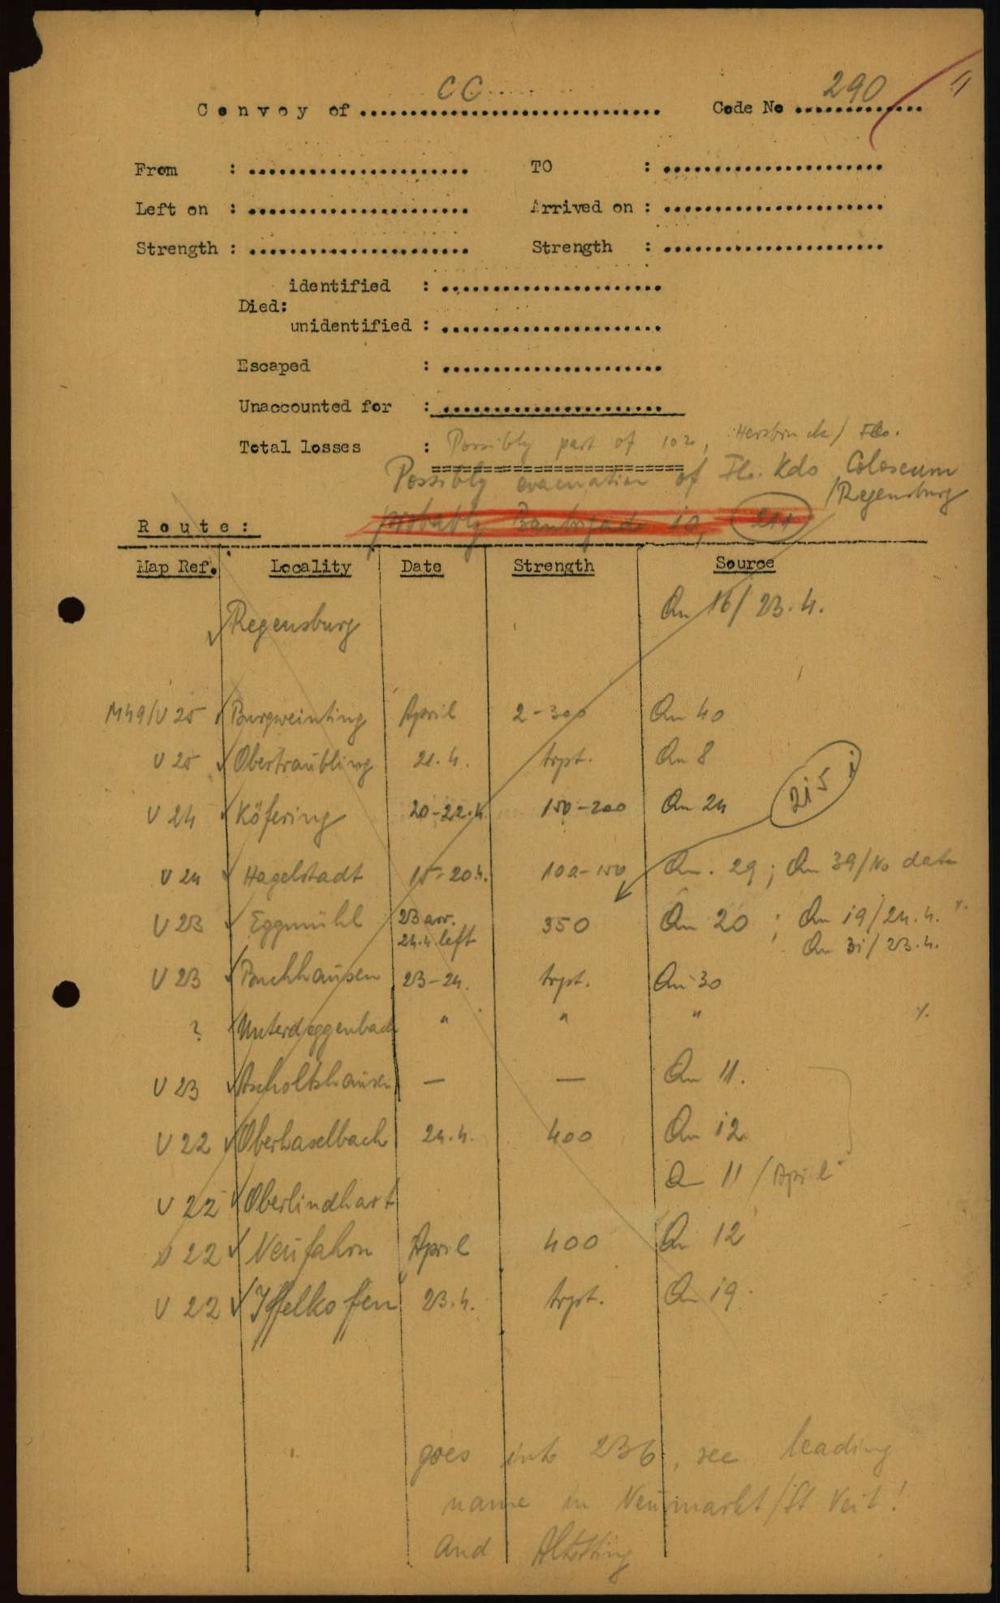 Convoy of ...CC... Code No 290
From : ..... TO : .....
Left on : ..... Arrived on : .....
Strength : ..... Strength : .....
identified : .....
Died:
unidentified : .....
Escaped : .....
Unaccounted for : .....
Total losses : Possibly part of 102, Hersbruck / Flo.
Possibly evacuation of Fl. Kdo Coloseum
/Regensburg
probably Baubrigade 10, 211
Route:
Map Ref. Locality Date Strength Source
Regensburg An 16/23.4.
M49/U25 Burgweinting April 2-300 An 40
U 25 Obertraubling 21.4. trpt. An 8
215
U 24 Köfering 20-22.4. 150-200 An 24
U 24 Hagelstadt 15-20.4. 100-150 An. 29; An 39/No date
U 23 Eggmühl 23 arr. 24.4 left 350 An 20; An 19/24.4.
An 31/23.4.
U 23 Buchhausen 23-24. trpt. An 30
? Unterdeggenbach " " "
U 23 Ascholtshausen — — An 11.
U 22 Oberhaselbach 24.4. 400 An 12
U 22 Oberlindhart An 11 / April
U 22 Neufahrn April 400 An 12
U 22 Iffelkofen 23.4. trpt. An 19.
goes into 236, see leading
name in Neumarkt/St Veit!
and Altötting